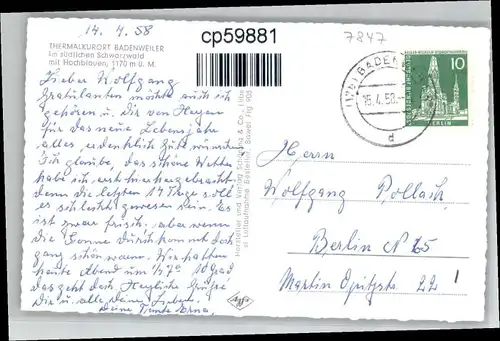 14. 4. 58
cp59881
7847
THERMALKURORT BADENWEILER
im südlichen Schwarzwald
mit Hochblauen, 1170 m ü. M.
Lieber Wolfgang
Gratulanten möchte auch ich
gehören u. Dir von Herzen
für das neue Lebensjahr
alles erdenklich Gute wünschen
Ich glaube, das schöne Wetter
habe ich erst hierhergebracht
denn die letzten 14 Tage soll
es schlecht gewesen sein. Es
ist zwar frisch, aber wenn
die Sonne durchkommt doch
ganz schön warm. Wir hatten
heute Abend um 10 Grad
das geht doch. Herzliche Grüße
Dir u. alle Deine Lieben.
Deine Tante Erna.
Hersteller und Verlag Schöning & Co., Lübeck
Luftaufnahme
Agfa
(17b) BADEN
15.4.58.
d
10
DEUTSCHE BUNDESPOST
BERLIN
Herrn
Wolfgang Pollach
Berlin N 65
Martin Opitzstr. 22 I